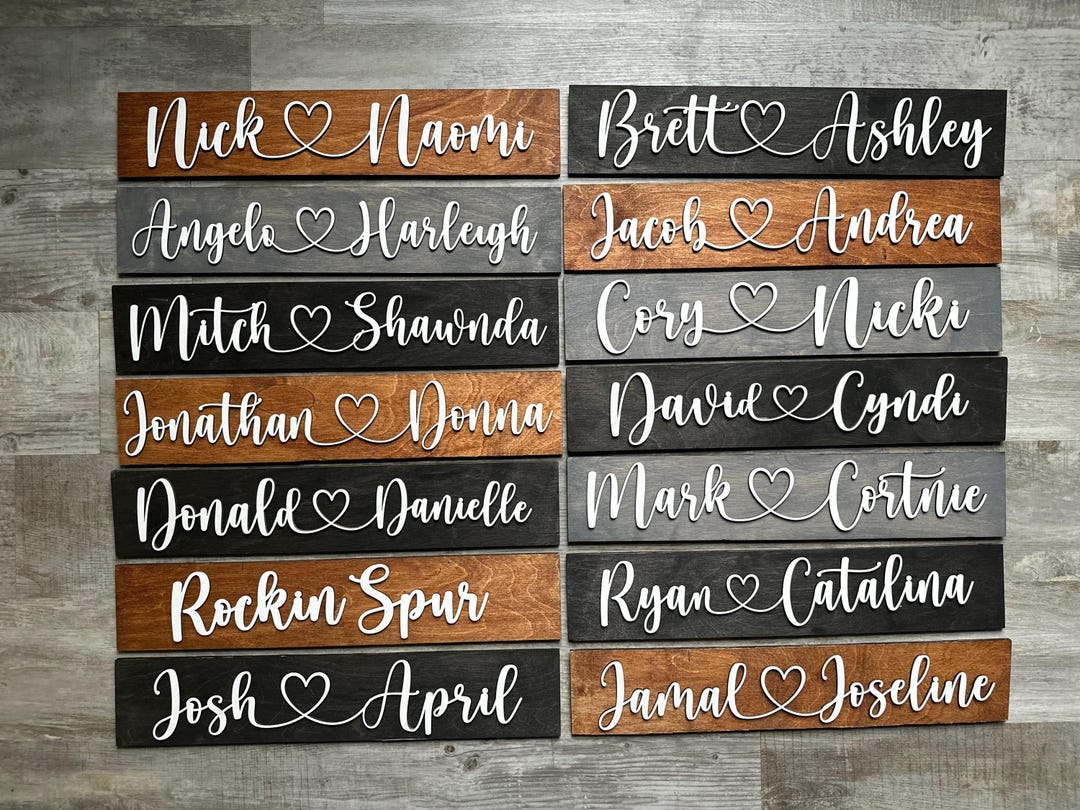 Nick Naomi
Angelo Harleigh
Mitch Shawnda
Jonathan Donna
Donald Danielle
Rockin Spur
Josh April
Brett Ashley
Jacob Andrea
Cory Nicki
David Cyndi
Mark Cortnie
Ryan Catalina
Jamal Joseline